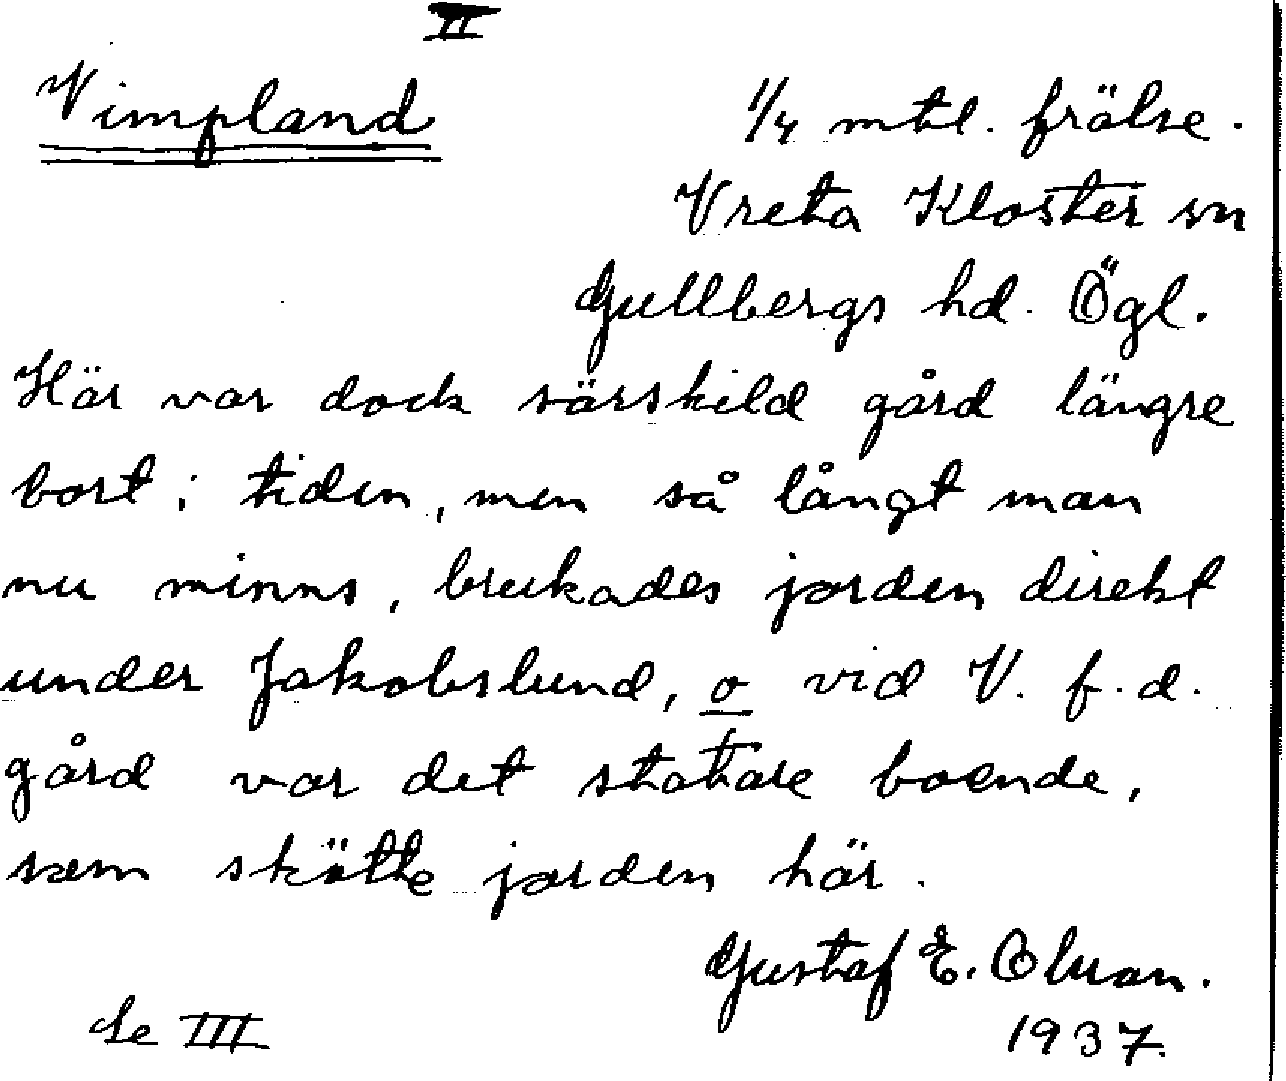 II
Vimpland
1/4 mtl. frälse.
Vreta Kloster sn
Gullbergs hd. Ögl.
Här var dock särskild gård längre
bort i tiden, men så långt man
nu minns, brukades jorden direkt
under Jakobslund, o vid V. f.d.
gård var det statare boende,
som skötte jorden här.
Gustaf E. Olsson.
Se III
1937.